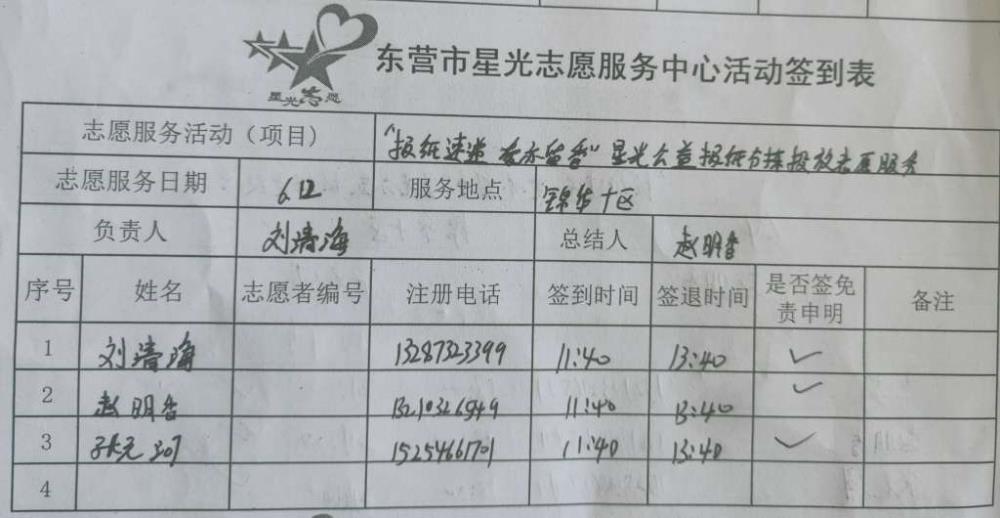 星光志愿
东营市星光志愿服务中心活动签到表
志愿服务活动（项目） "报纸速递 春水留香"星光公益报纸分拣投放志愿服务
志愿服务日期 6.12 服务地点 锦华十区
负责人 刘清海 总结人 赵明香
序号 姓名 志愿者编号 注册电话 签到时间 签退时间 是否签免责申明 备注
1 刘清海 13287323399 11:40 13:40 ✓
2 赵明香 11:40 13:40 ✓
3 15254661701 11:40 13:40 ✓
4